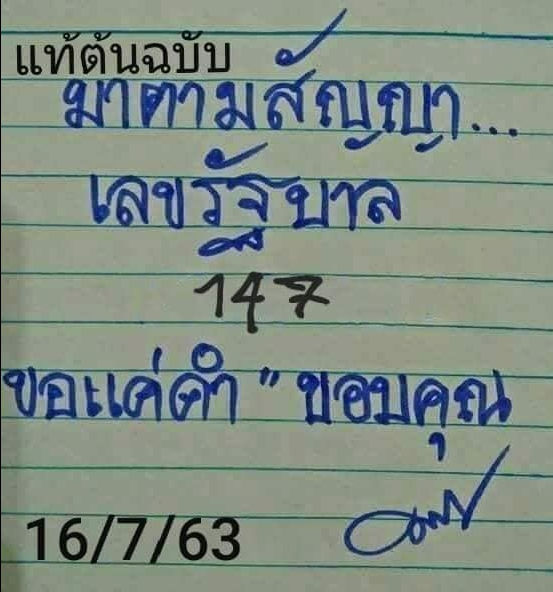 แท้ต้นฉบับ
มาตามสัญญา...
เลขรัฐบาล
147
ขอแค่คำ "ขอบคุณ
16/7/63